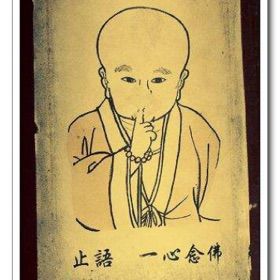 止語 一心念佛